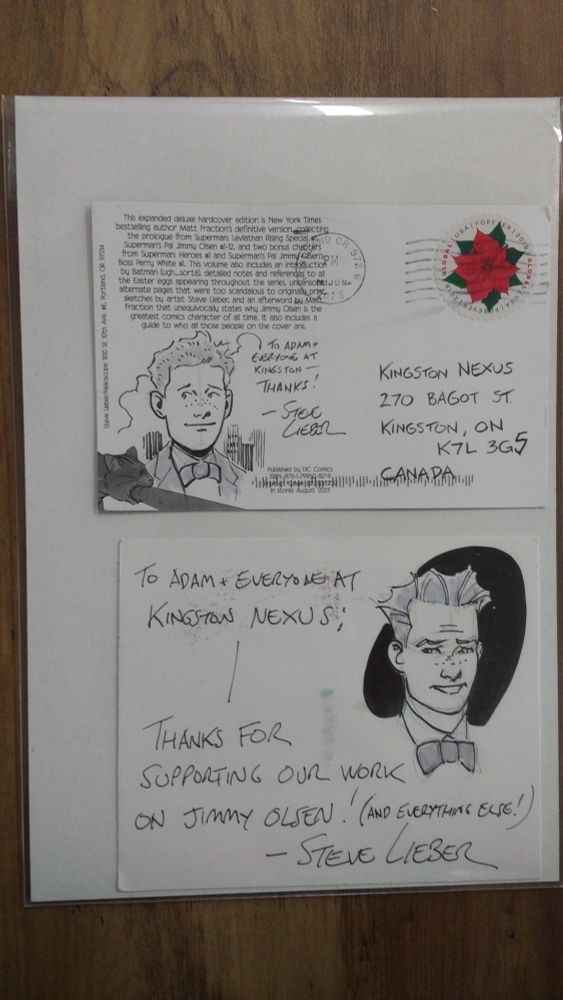 This expanded deluxe hardcover edition is New York Times
bestselling author Matt Fraction's definitive version, collecting
the prologue from Superman: Leviathan Rising Special #1,
Superman's Pal Jimmy Olsen #1-12, and two bonus chapters
from Superman: Heroes #1 and Superman's Pal Jimmy Olsen's
Boss Perry White #1. This volume also includes an introduction
by Batman (ugh...sorta), detailed notes and references to all
the Easter eggs appearing throughout the series, uncensored
alternate pages that were too scandalous to originally print,
sketches by artist Steve Lieber, and an afterword by Matt
Fraction that unequivocally states why Jimmy Olsen is the
greatest comics character of all time. It also includes a
guide to who all those people on the cover are.
Steve Lieber/Helioscope 1810 SE 10th Ave. Portland, OR 97214
OR 972
PM
JUN
GLOBAL USA FOREVER GLOBAL USA FOREVER
TO ADAM +
EVERYONE AT
KINGSTON —
THANKS!
— STEVE
LIEBER
KINGSTON NEXUS
270 BAGOT ST.
KINGSTON, ON
K7L 3G5
CANADA
Published by DC Comics
In stores August 2025
TO ADAM + EVERYONE AT
KINGSTON NEXUS:
THANKS FOR
SUPPORTING OUR WORK
ON JIMMY OLSEN! (AND EVERYTHING ELSE!)
— STEVE LIEBER